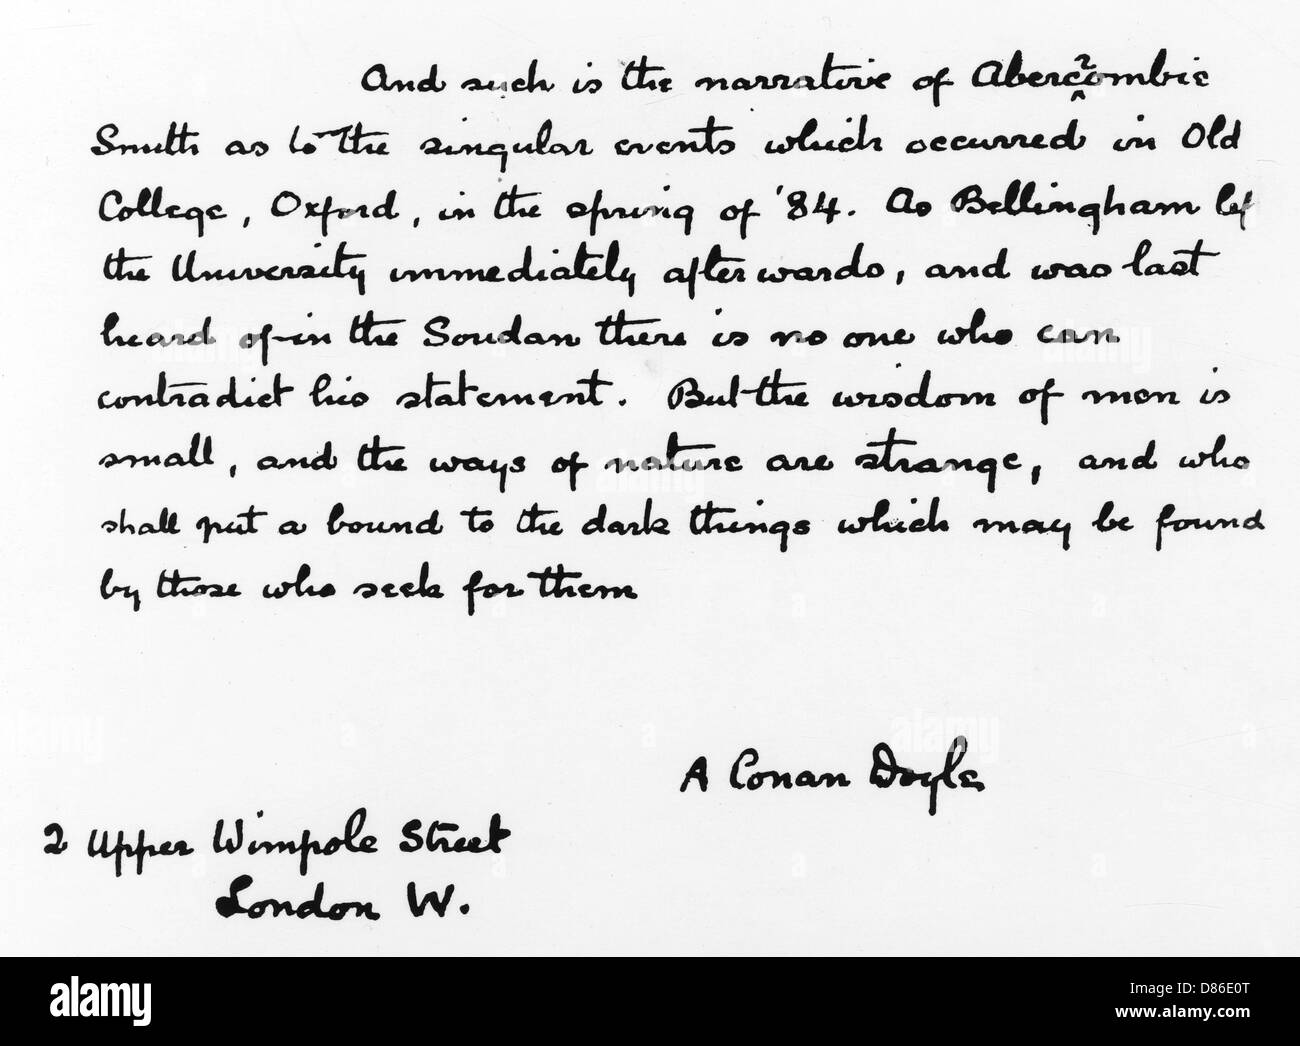 And such is the narrative of Abercrombie
Smith as to the singular events which occurred in Old
College, Oxford, in the spring of '84. As Bellingham lef
the University immediately afterwards, and was last
heard of in the Soudan there is no one who can
contradict his statement. But the wisdom of men is
small, and the ways of nature are strange, and who
shall put a bound to the dark things which may be found
by those who seek for them
A Conan Doyle
2 Upper Wimpole Street
London W.
alamy
Image ID: D86E0T
www.alamy.com